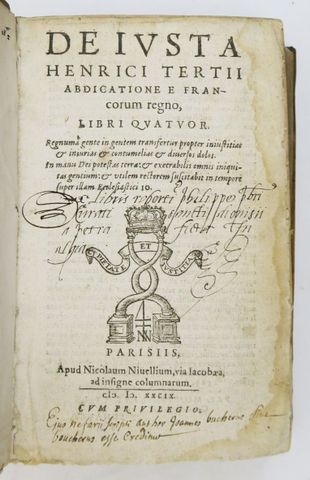 DE IVSTA
HENRICI TERTII
ABDICATIONE E FRAN-
corum regno,
LIBRI QVATVOR.
Regnum à gente in gentem transfertur propter iniustitias
& iniurias & contumelias & diuersos dolos.
In manu Dei potestas terræ: & execrabilis omnis iniqui-
tas gentium: & vtilem rectorem suscitabit in tempore
super illam Ecclesiastici 10.
Ex libris Philippe
a Petra
PIETATE ET IVSTITIA
PARISIIS,
Apud Nicolaum Niuellium, via Iacobæa,
ad insigne columnarum.
CIↃ. IↃ. XXCIX.
CVM PRIVILEGIO.
Ejus nefarii scripti author Joannes bucherus
boucherus esse Creditur